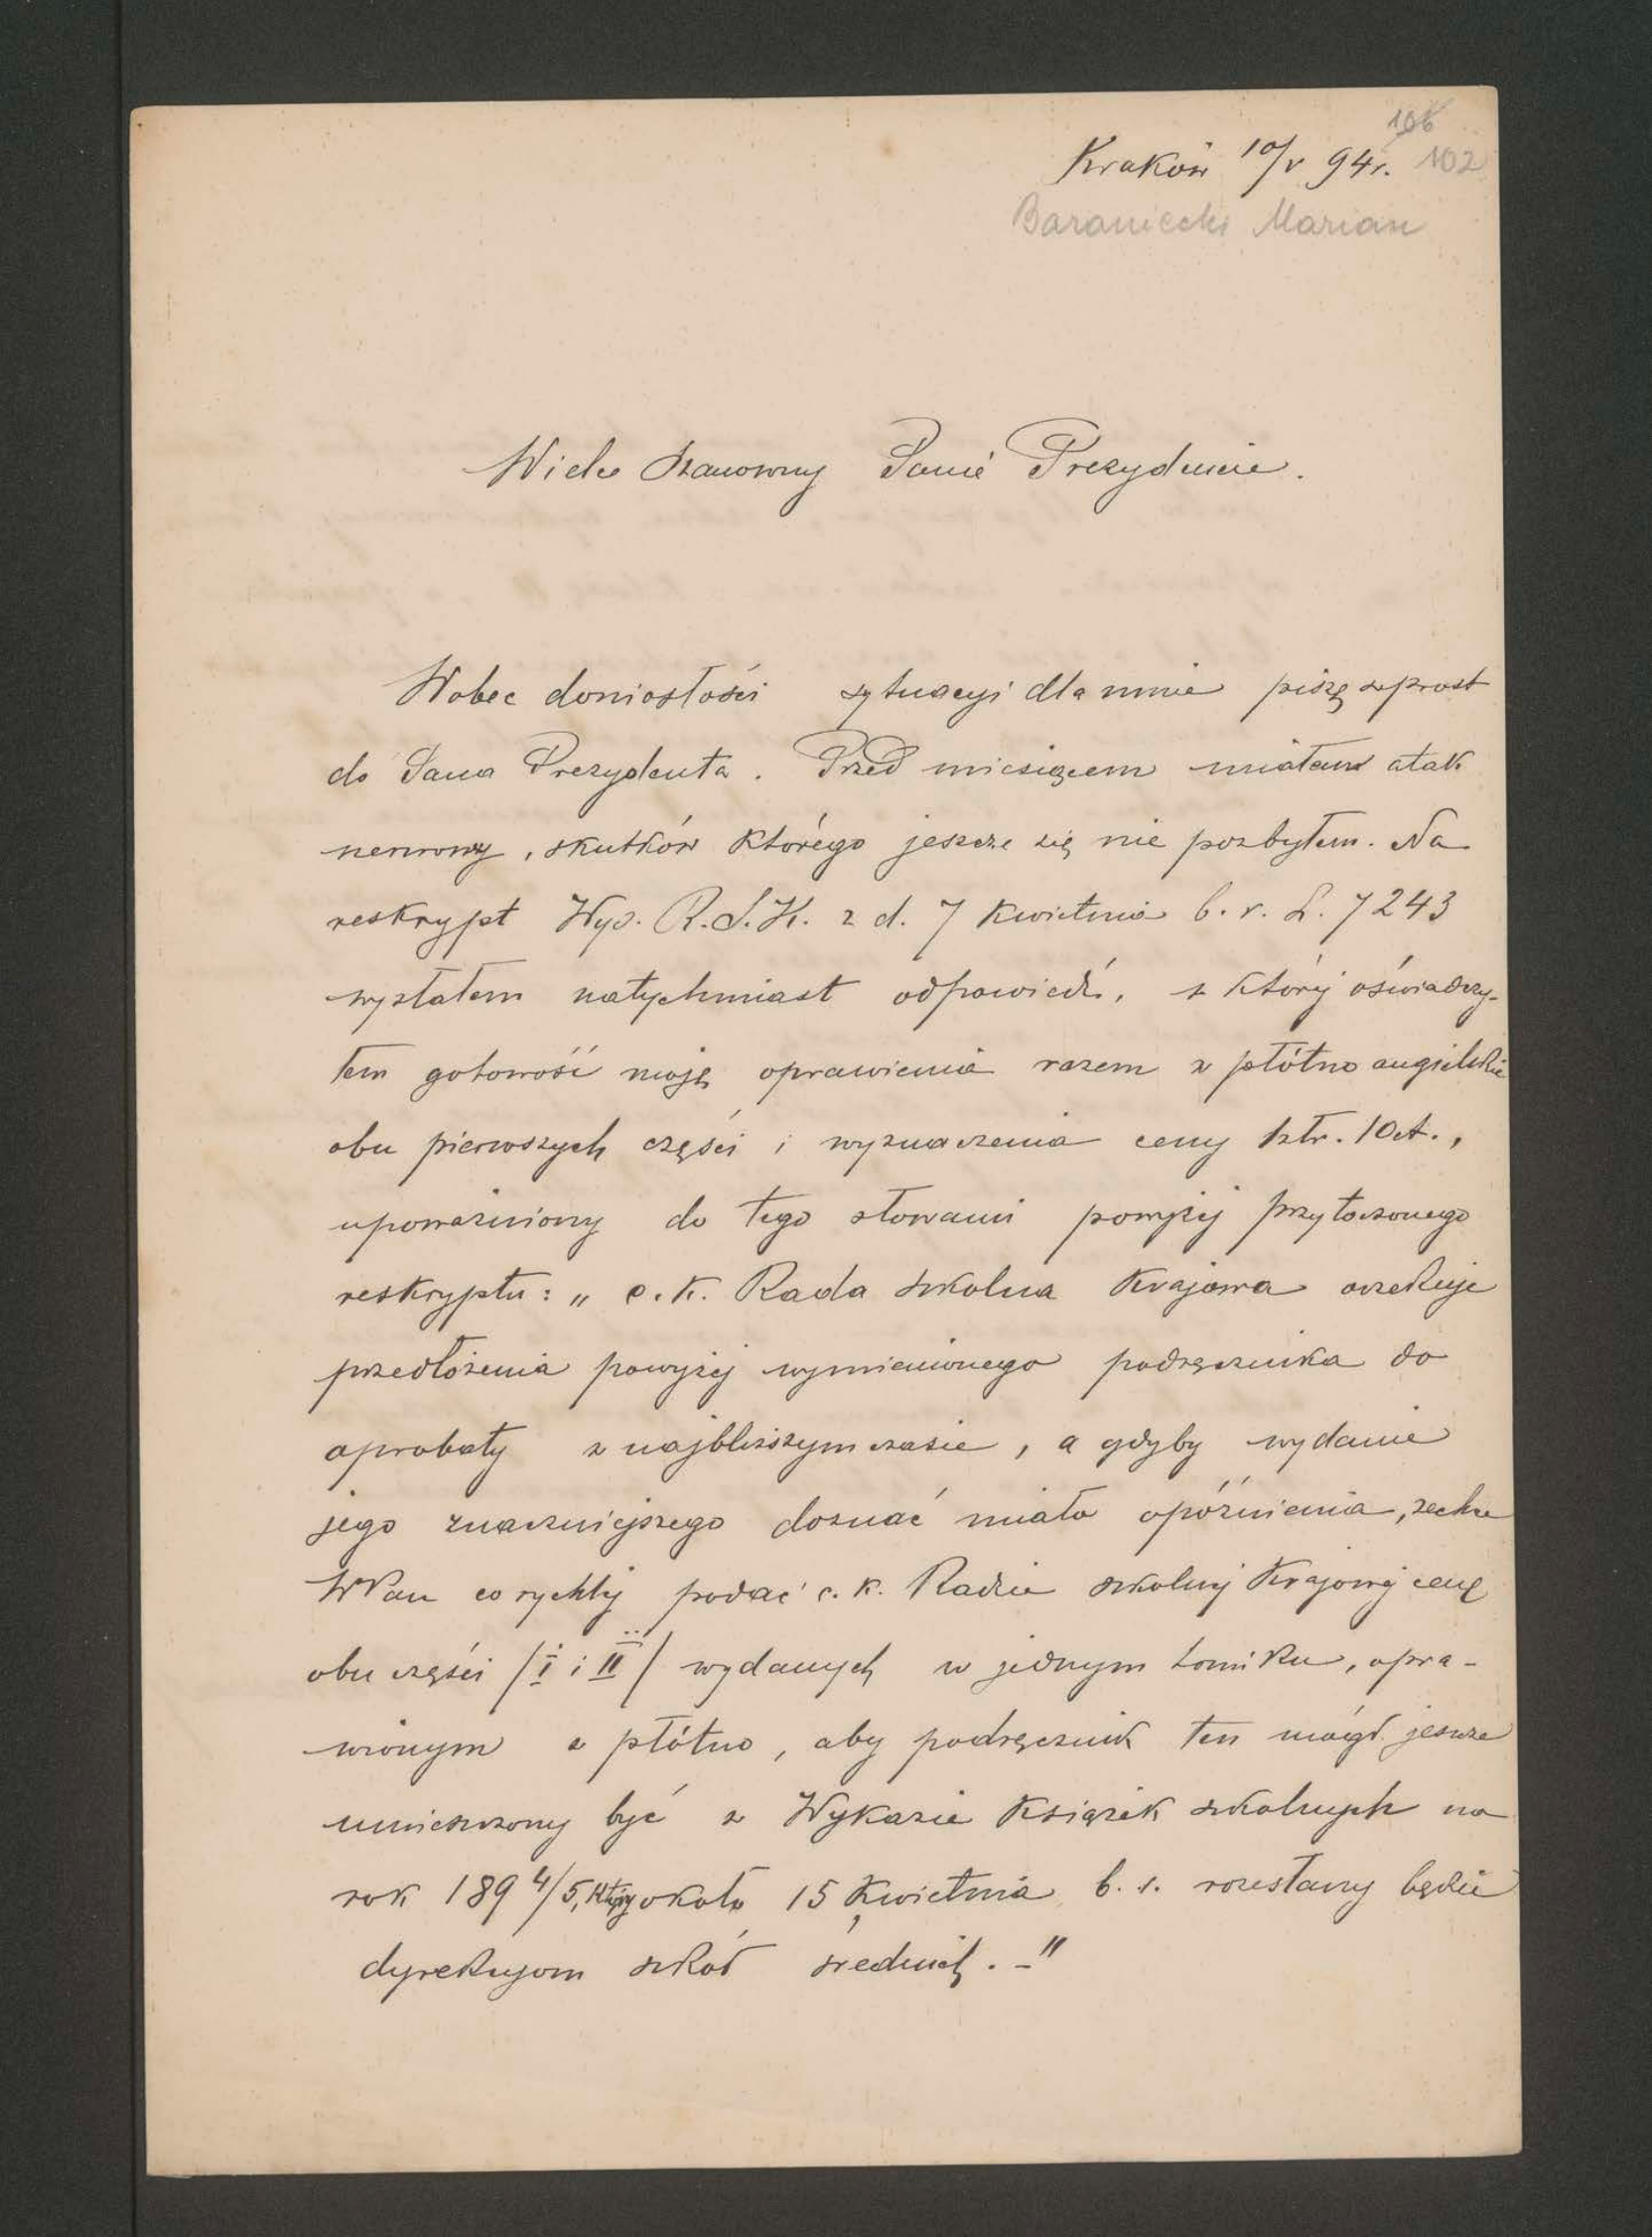 106
Kraków 10/V 94r. 102
Baraniecki Marian
Wielce Szanowny Panie Prezydencie.
Wobec doniosłości sytuacyi dla mnie piszę wprost
do Pana Prezydenta. Przed miesiącem miałem atak
nerwowy, skutków którego jeszcze się nie pozbyłem. Na
reskrypt Wys. R. S. K. z d. 7 Kwietnia b. r. L. 7243
wysłałem natychmiast odpowiedź, w której oświadczy-
łem gotowość moję oprawienia razem w płótno angielskie
obu pierwszych części i wyznaczenia ceny 1złr. 10ct.,
upoważniony do tego słowami powyżej przytoczonego
reskryptu: „c. k. Rada szkolna Krajowa oczekuje
przedłożenia powyżej wymienionego podręcznika do
aprobaty w najbliższym czasie, a gdyby wydanie
jego znaczniejszego doznać miało opóźnienia, zechce
WPan co rychlej podać c. k. Radzie szkolnej Krajowej cenę
obu części /I i II/ wydanych w jednym tomiku, opra-
wionym w płótno, aby podręcznik ten mógł jeszcze
umieszczony być w Wykazie Książek szkolnych na
rok 1894/5, który około 15 Kwietnia b. r. rozesłany będzie
dyrekcyom szkół średnich. –"